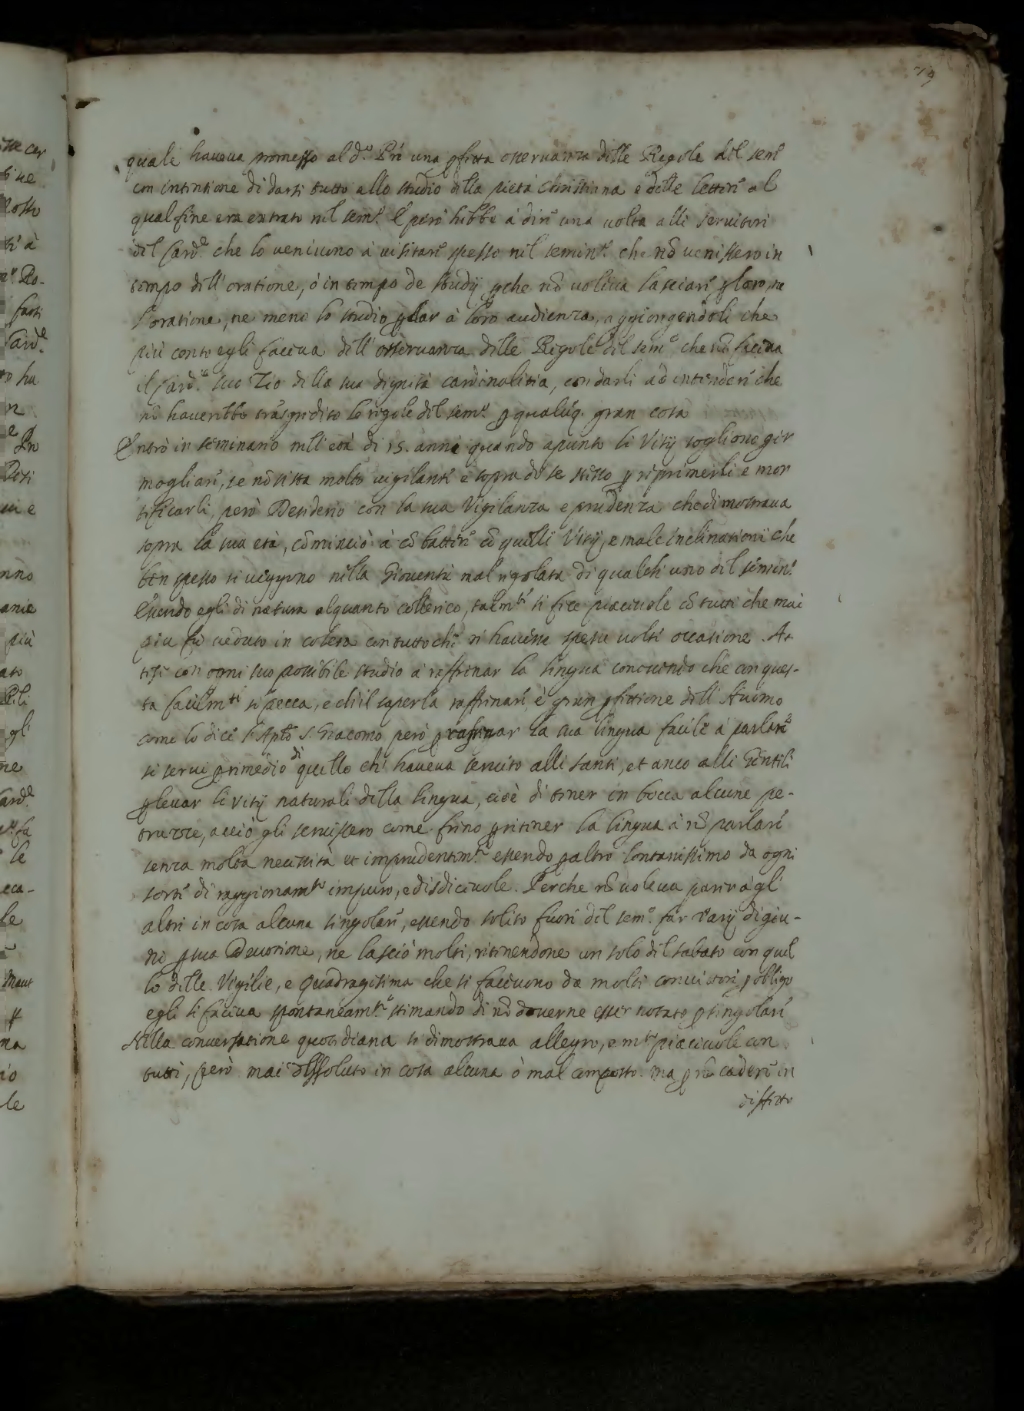 79
quale haveva promesso al d.º Prè una pfetta osservanza delle Regole del semº
con intentione di darsi tutto allo studio della pietà christiana e delle letterè al
qual fine era entrato nel semº. E però hebbe à dirè una volta alli servitori
del Card.e che lo venivono à visitarè spesso nel seminº. che nō venissero in
tempo dell' oratione, ó in tempo de studij pche nō voleva lasciarè p loro, ne
l'oratione, ne meno lo studio p dar à loro audienza, aggiongendoli che
più conto egli faceva dell' osservanza delle Regole del semº che nō faceva
il Card.e suo Zio della sua dignità cardinalitia, con darli ad intenderè che
nō haverebbe trāsgredito le regole del semº. p qualūq. gran cosa
Entrò in seminario nell' età di 15. anni quando apunto li Vitij sogliono ger
mogliarè, se nō si sta molto vigilanti è sopra di se stesso p riprimerli e mor
tificarli, però Desiderio con la sua Vigilanza e prudenza che dimostrava
sopra la sua età, cōminciò à cōbatterè cō quelli Vitij, e male inclinationi che
ben spesso si veggono nella Gioventù mal regolata di qualch' uno del seminº.
Essendo egli di natura alquanto collerico, talm.te si fece piacevole cō tutti che mai
più fù veduto in colera con tutto che n' havesse spesse volte occasione. At
tese con ogni suo possibile studio à raffrenar la lingua conoscendo che con ques-
ta facilm.te si pecca, e ch' il saperla raffrenarè è gran pfetione dell' huomo
come lo dice l'Aplō S. Giacomo, però p rafrenar la sua lingua facile à parlarè
si servì p rimedio di quello che haveva servito alli santi, et anco alli Gentili
p levar li vitij naturali della lingua, cioè di tener in bocca alcune pe-
truzze, acciò gli servissero come freno p ritener la lingua à nō parlarè
senza molta necessità et imprudentem.te essendo p altro lontanissimo da ogni
sortè di raggionam.to impuro, e disdicevole. Perche nō voleva parer à gl'
altri in cosa alcuna singolarè, essendo solito fuori del semº. far varij digiu-
ni p sua Devotione, ne lasciò molti, ritenendone un solo del sabato con quel
lo delle Vigilie, e Quadragesima che si facevono da molti convittori, p obligo
egli li faceva spontaneam.te stimando di nō doverne esser notato p singolarè
Nella conversatione quotidiana si dimostrava allegro, e m.to piacevole con
tutti, però mai dissoluto in cosa alcuna ò mal composto. ma p nō caderè in
diffetto